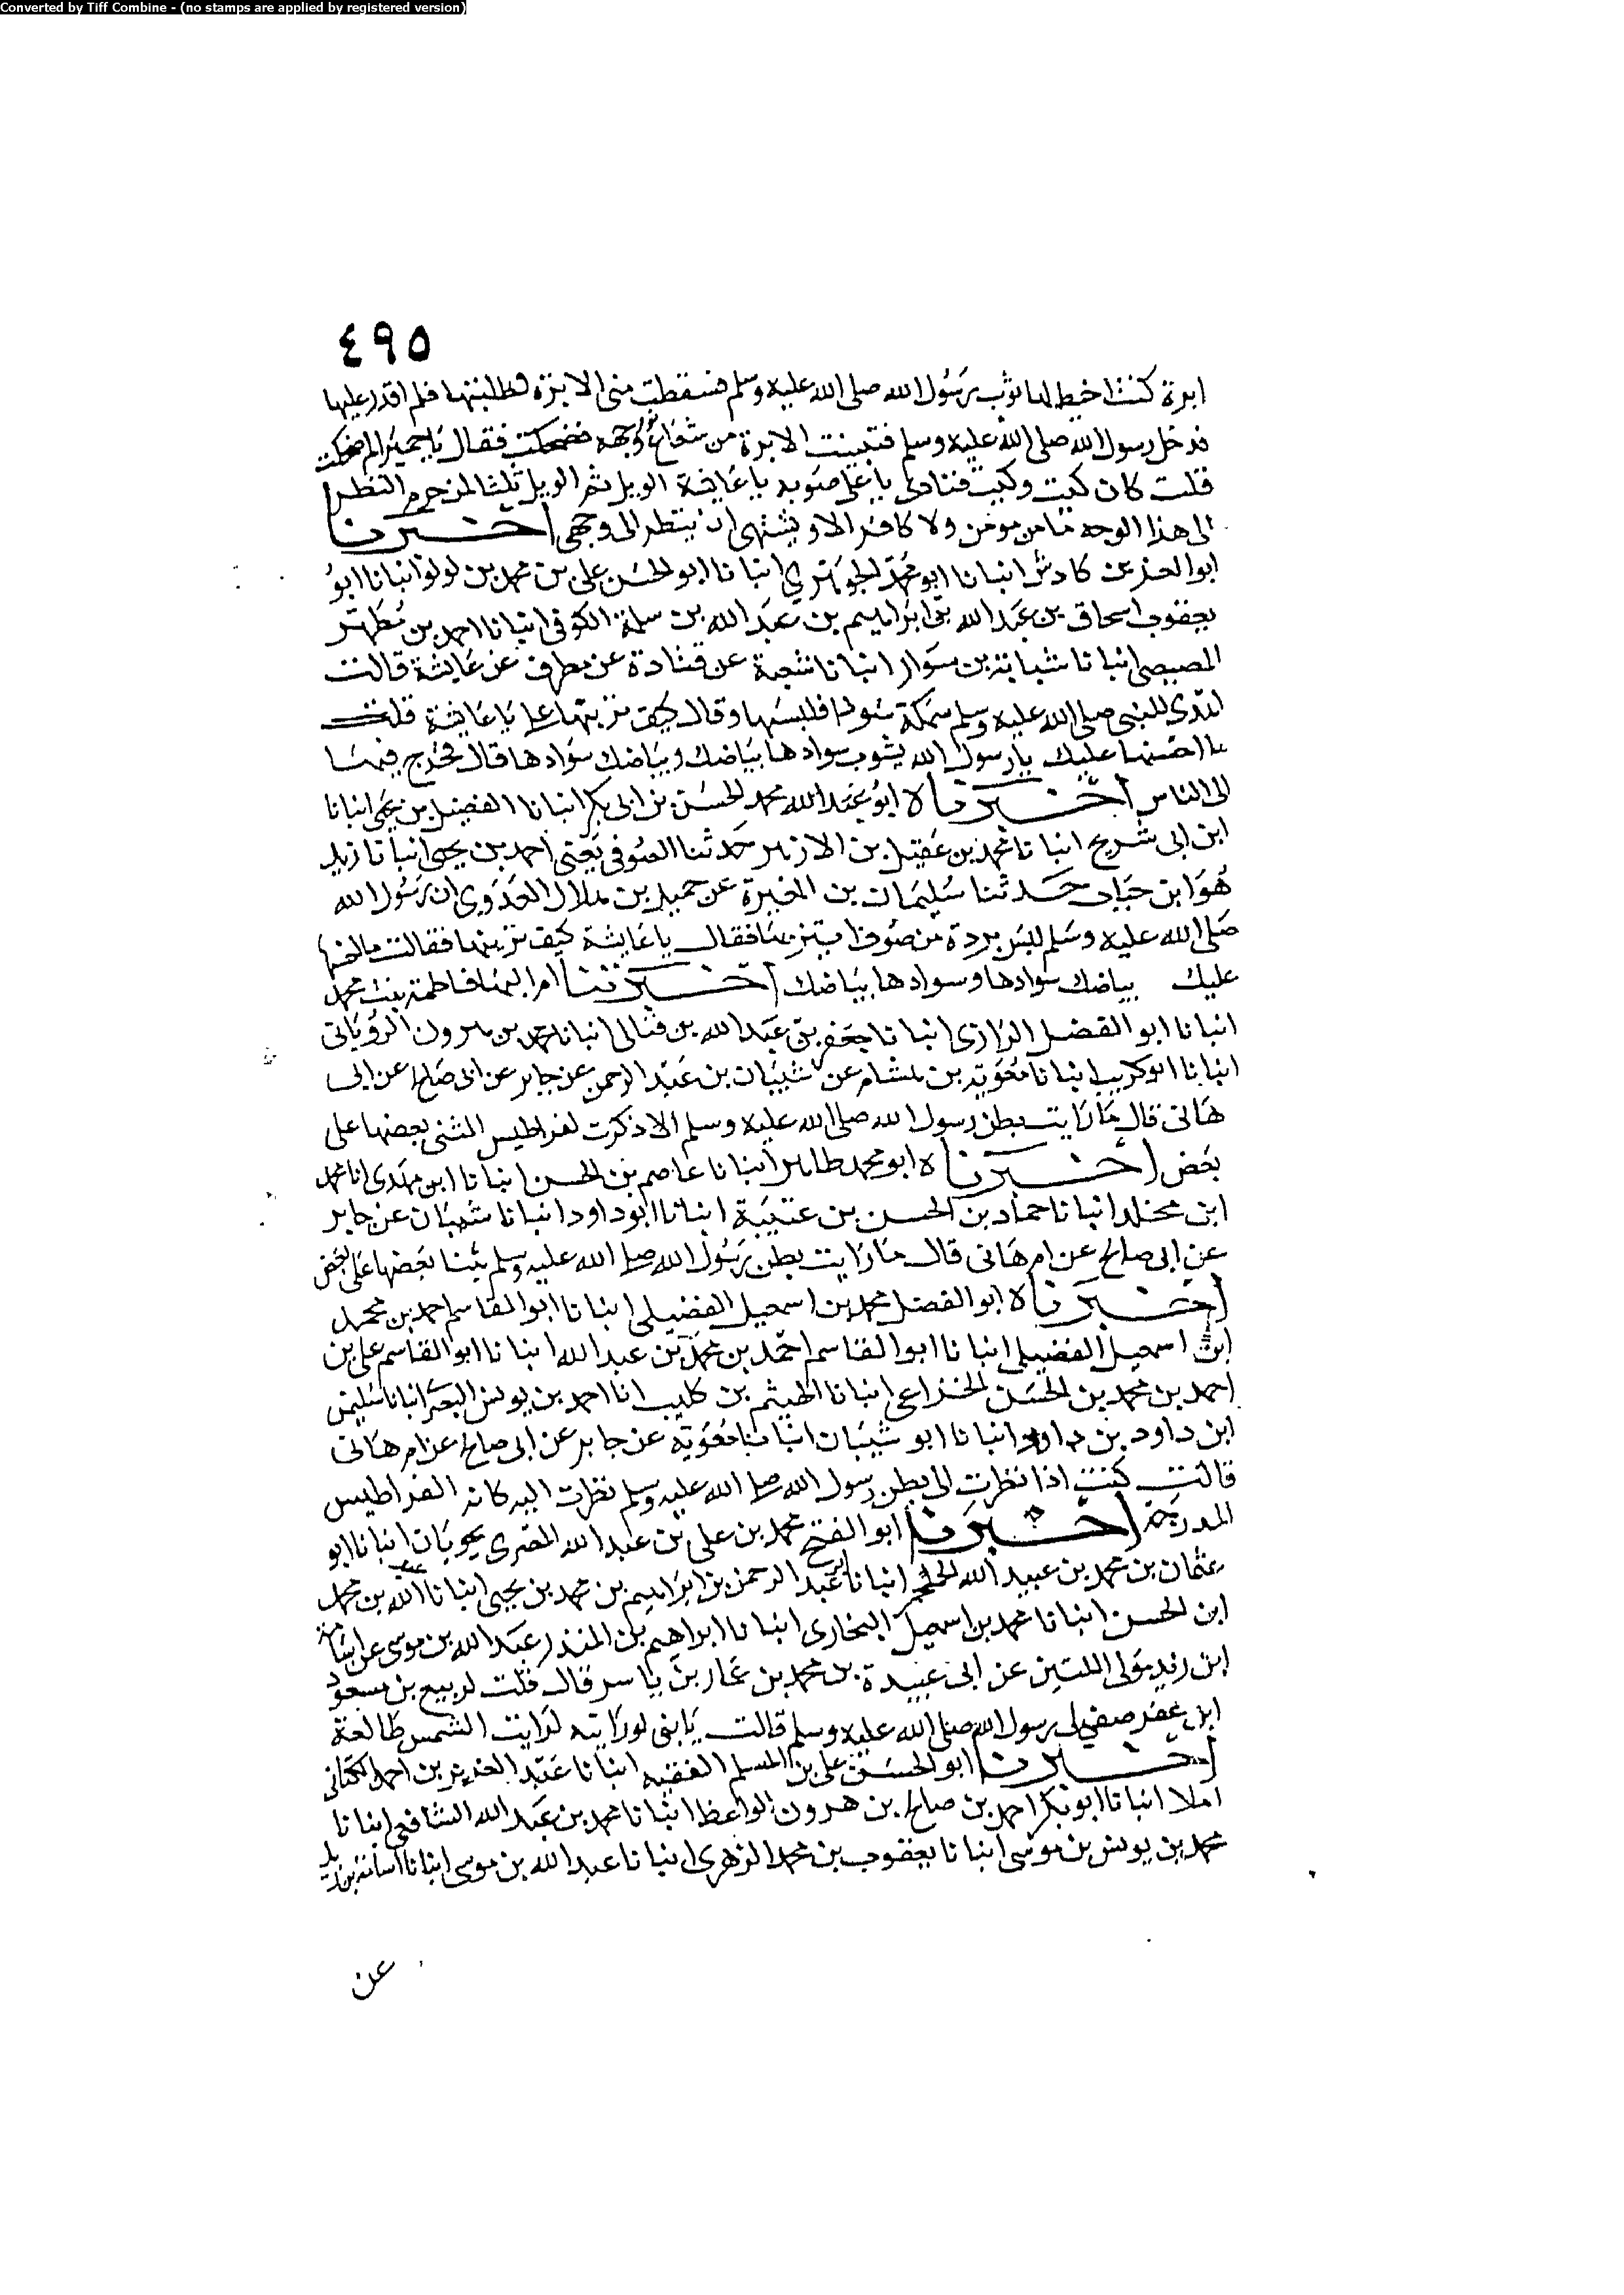 Converted by Tiff Combine - (no stamps are applied by registered version)
٤٩٥
ابرة كنت اخيط بها ثوب رسول الله صلى الله عليه وسلم فسقطت منى الابرة فطلبتها فلم اقدر عليها
فدخل رسول الله صلى الله عليه وسلم فتبينت الابرة من شعاع نور وجهه فضحكت فقال يا حميرا لم ضحكت
قلت كان كيت وكيت فنادى با على صوته يا عايشة الويل ثم الويل ثلثا لمن حرم النظر
الى هذا الوجه ما من مومن ولا كافر الا ويشتهى ان ينظر الى وجهى اخبرنا
ابو العز بن كادش انبانا ابو محمد الجوهرى انبانا ابو الحسن على بن محمد بن لولو انبانا ابو
يعقوب اسحاق بن عبد الله بن ابراهيم بن عبد الله بن سلمة الكوفى انبانا احمد بن مطهر
المصيصى انبانا شبابة بن سوار انبانا شعبة عن قتادة عن مطرف عن عايشة قالت
اهدى للنبى صلى الله عليه وسلم شملة سودا فلبسها وقال كيف ترينها على يا عايشة قلت
ما احسنها عليك يا رسول الله يشوب سوادها بياضك وبياضك سوادها قال فخرج فيها
الى الناس اخبرناه ابو عبد الله محمد الحسن بن ابى بكر انبانا الفضيل بن يحيى انبانا
ابن ابى شريح انبانا محمد بن عقيل بن الازهر حدثنا الصوفى يعنى احمد بن يحيى انبانا زيد
هو ابن حباب حدثنا سليمان بن المغيرة عن حميد بن هلال العدوى ان رسول الله
صلى الله عليه وسلم لبس بردة من صوف فقال يا عايشة كيف ترينها فقالت ما احسنها
عليك بياضك سوادها وسوادها بياضك اخبرتنا ام البها فاطمة بنت محمد
انبانا ابو الفضل الرازى انبانا جعفر بن عبد الله بن فناكى انبانا محمد بن هرون الرويانى
انبانا ابو كريب انبانا معوية بن هشام عن شيبان بن عبد الرحمن عن جابر عن ابى صالح عن ابى
هانى قال ما رايت بطن رسول الله صلى الله عليه وسلم الا ذكرت القراطيس المثنى بعضها على
بعض اخبرناه ابو محمد طاهر انبانا عاصم بن الحسن انبانا ابن مهدى انا محمد
ابن مخلد انبانا حماد بن الحسن بن عنبسة انبانا ابو داود انبانا شيبان عن جابر
عن ابى صالح عن ام هانى قال ما رايت بطن رسول الله صلى الله عليه وسلم بعضها على بعض
اخبرناه ابو الفضل محمد بن اسمعيل الفضيلى انبانا ابو القاسم احمد بن محمد
ابن اسمعيل الفضيلى انبانا ابو القاسم احمد بن محمد بن عبد الله انبانا ابو القاسم على بن
احمد بن محمد بن الحسن الخزاعى انبانا الهيثم بن كليب انا احمد بن يونس انبانا سليمن
ابن داود بن داود انبانا ابو شيبان انبانا معوية عن جابر عن ابى صالح عن ام هانى
قالت كنت اذا نظرت الى بطن رسول الله صلى الله عليه وسلم نظرت اليه كانه القراطيس
المدرجة اخبرنا ابو الفتح محمد بن على بن عبد الله المصرى انبانا ابو
عثمان بن محمد بن عبيد الله انبانا عبد الرحمن بن ابراهيم بن محمد بن يحيى انبانا عبد الله بن محمد
ابن الحسن انبانا محمد بن اسمعيل البخارى انبانا ابراهيم بن المنذر عبد الله بن موسى عن اسامة
ابن زيد مولى الليثيين عن ابى عبيدة بن محمد بن عمار بن ياسر قال قلت لربيع بنت معوذ
ابن عفرا صفى لى رسول الله صلى الله عليه وسلم قالت يا بنى لو رايته لرايت الشمس طالعة
اخبرنا ابو الحسن على بن المسلم الفقيه انبانا عبد العزيز بن احمد الكتانى
املا انبانا ابو بكر احمد بن صالح بن هرون الواعظ انبانا محمد بن عبد الله الشافعى انبانا
محمد بن يونس بن موسى انبانا يعقوب بن محمد الزهرى انبانا عبد الله بن موسى انبانا اسامة بن زيد
عن